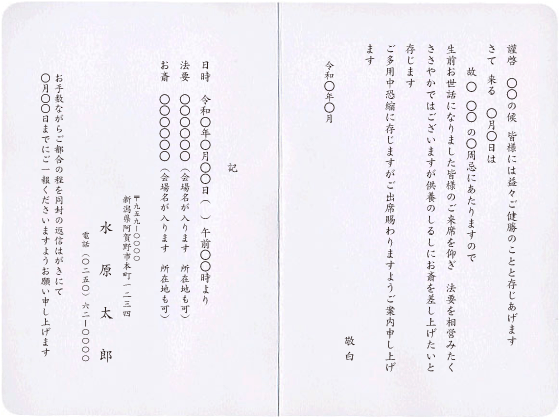 謹啓　〇〇の候　皆様には益々ご健勝のことと存じあげます
さて　来る　〇月〇日は
故〇　〇〇　の〇周忌にあたりますので
生前お世話になりました皆様のご来席を仰ぎ　法要を相営みたく
ささやかではございますが供養のしるしにお斎を差し上げたいと
存じます
ご多用中恐縮に存じますがご出席賜わりますようご案内申し上げ
ます
敬白
令和〇年〇月
記
日時　令和〇年〇月〇〇日（　）午前〇〇時より
法要　〇〇〇〇〇〇（会場名が入ります　所在地も可）
お斎　〇〇〇〇〇〇（会場名が入ります　所在地も可）
〒九五九-〇〇〇〇
新潟県阿賀野市本町一二三四
水原太郎
電話（〇二五〇）六二-〇〇〇〇
お手数ながらご都合の程を同封の返信はがきにて
〇月〇〇日までにご一報くださいますようお願い申し上げます